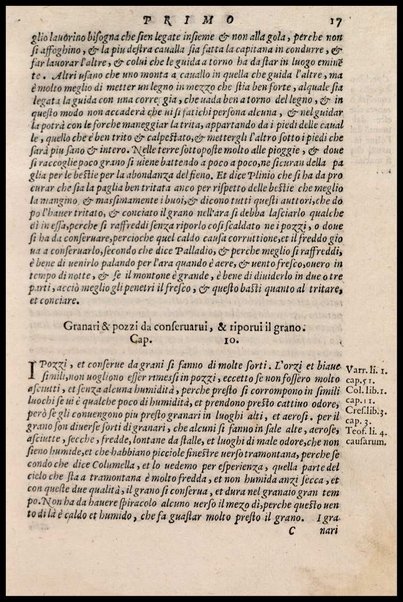 PRIMO 17
glio lauorino bisogna che sien legate insieme & non alla gola, perche non
si affoghino, & la piu destra caualla sia fatta la capitana in condurre, &
far lauorar l'altre, & colui che le guida a torno ha da star in luogo emin&ē
te. Altri usano che uno monta a cauallo in quella che guida l'altre, ma
è molto meglio di metter un legno in mezzo che stia ben forte, al quale sia
legata la guida con una correggia, che uada ben a torno del legno, & in
questo modo non accaderà che ui si fatichi persona alcuna, & nel guidar
la potrà con le forche maneggiar la trita, appartando di i piedi delle caual
le, quello che è ben trito & calpestato, & mettergli l'altro sotto i piedi che
sarà piu sano & intero. Nelle terre sottoposte molto alle pioggie, & doue
si raccoglie poco grano si uiene battendo a poco a poco, ne si curan della pa
glia per le bestie per la abondanza del fieno. Et dice Plinio che si ha da pro
curar che sia la paglia ben tritata anco per rispetto delle bestie che meglio
la mangino & massimamente i buoi, & dicono tutti questi auttori, che do
po l'hauer tritato, & conciato il grano nell'ara si debba lasciarlo qualche
dì in essa, perche si raffreddi senza riporlo così scaldato ne i pozzi, o doue
si ha da conseruare, percioche quel caldo causa corruttione, et il freddo gio
ua a conseruarlo, secondo che dice Palladio, & perche meglio si raffreddi,
è bene di uenirlo palando per l'ara quando è aere, & uento fresco, ouero in
tempo di notte, & se il montone è grande, è bene di diuiderlo in due o tre
parti, acciò meglio gli penetri il fresco, & questo quanto al tritare,
et conciare.
Granari & pozzi da conseruarui, & riporui il grano.
Cap. 10.
I Pozzi, et conserue da grani si fanno di molte sorti. L'orzi et biaue
simili, non uogliono esser rimessi in pozzi, eccetto se non fossero molto
asciutti, et senza alcuna humidità, perche presto si corrompono in simili
luochi se ui è qualche poco di humidità, et prendono presto cattiuo odore,
però se gli conuengono piu presto granari in luoghi alti, et aerosi. per il
grano son diuerse sorti di granari, che alcuni si fanno in sale alte, aerose,
asciutte, secche, fredde, lontane da stalle, et luoghi di male odore, che non
sieno humide, et che habbiano picciole finestre uerso tramontana, perche se
condo che dice Columella, et lo uedemo per esperienza, quella parte del
cielo che sta a tramontana è molto fredda, et non humida anzi secca, et
con queste due qualità, il grano si conserua, et dura nel granaio gran tem
po. Non ha da hauere spiracolo alcuno uerso il mezo dì, perche questo uen
to di là è caldo et humido, che fa guastar molto presto il grano. I gra
C nari
Varr. li. 1.
cap. 51.
Col. lib. 1.
cap. 11.
Cres. lib. 3.
cap. 3.
Teof. li. 4.
causarum.